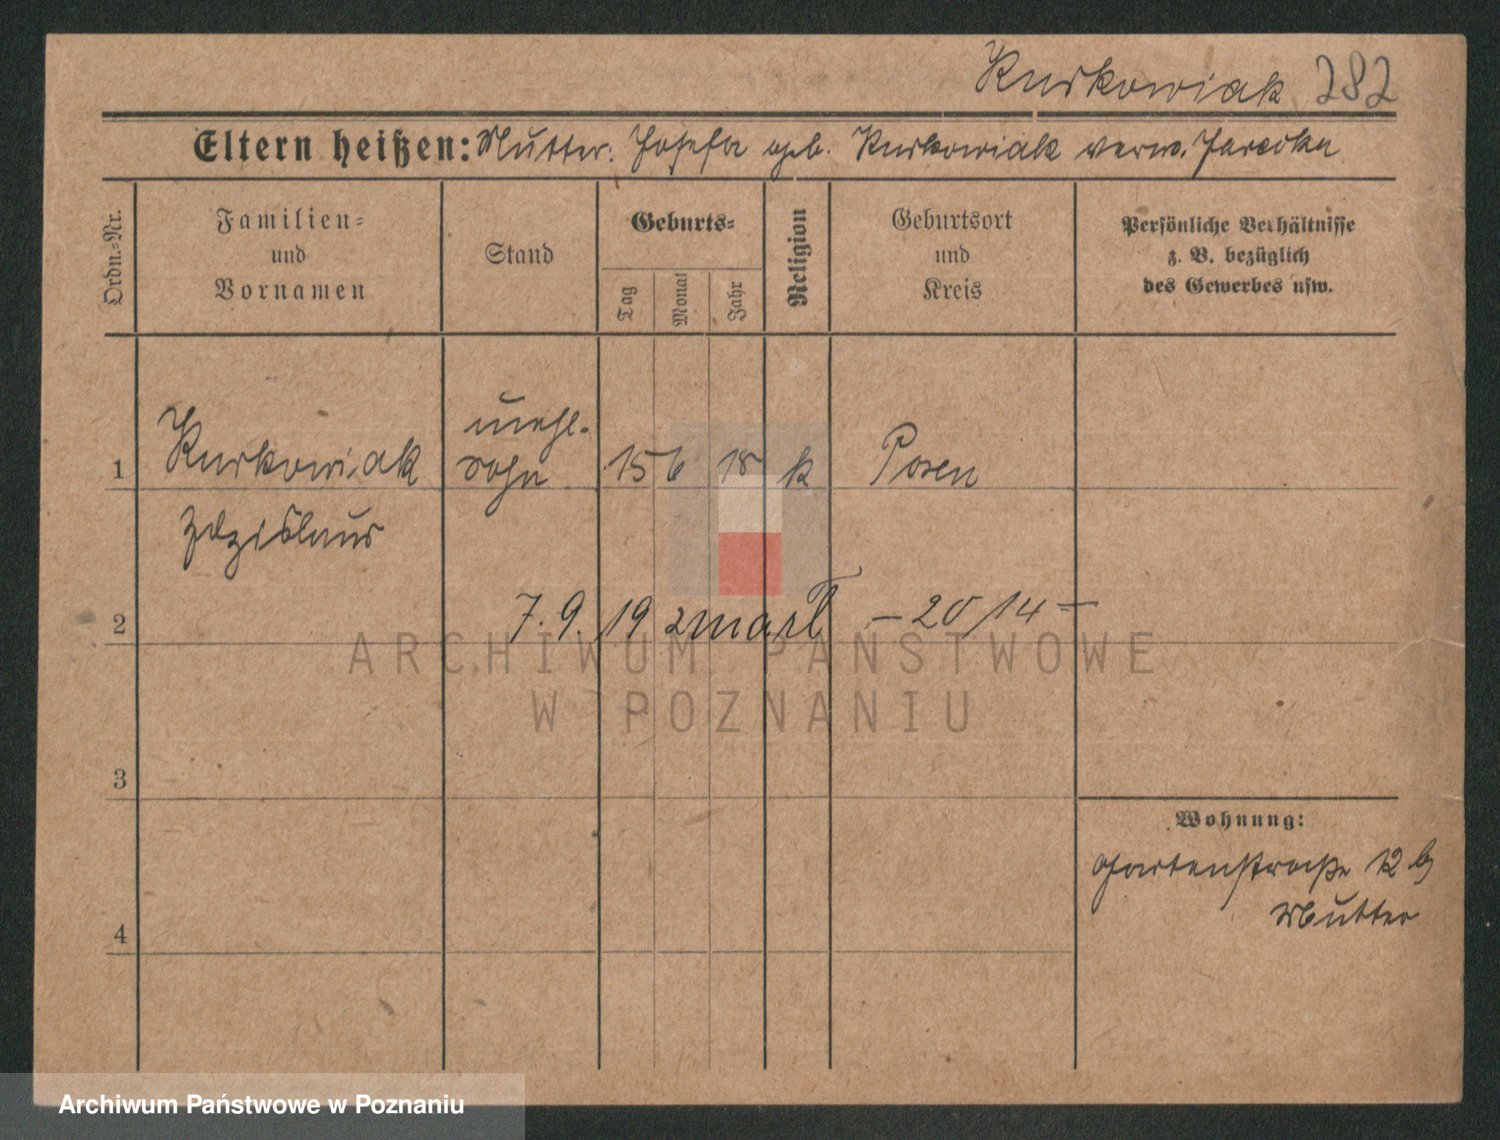 Kurkowiak 282
Eltern heißen: Mutter. Josefa geb. Kurkowiak verw. Jarecka
Ordn.-Nr.
Familien-
und
Vornamen
Stand
Geburts-
Tag
Monat
Jahr
Religion
Geburtsort
und
Kreis
Persönliche Verhältnisse
z. B. bezüglich
des Gewerbes usw.
1 Kurkowiak unehl. sohn 15 6 18 k Posen
Zdzislaus
2 7. 9. 19 zmarł – 20/14 –
ARCHIWUM PAŃSTWOWE
W POZNANIU
3
Wohnung:
Gartenstraße 12 b
Mutter
4
Archiwum Państwowe w Poznaniu